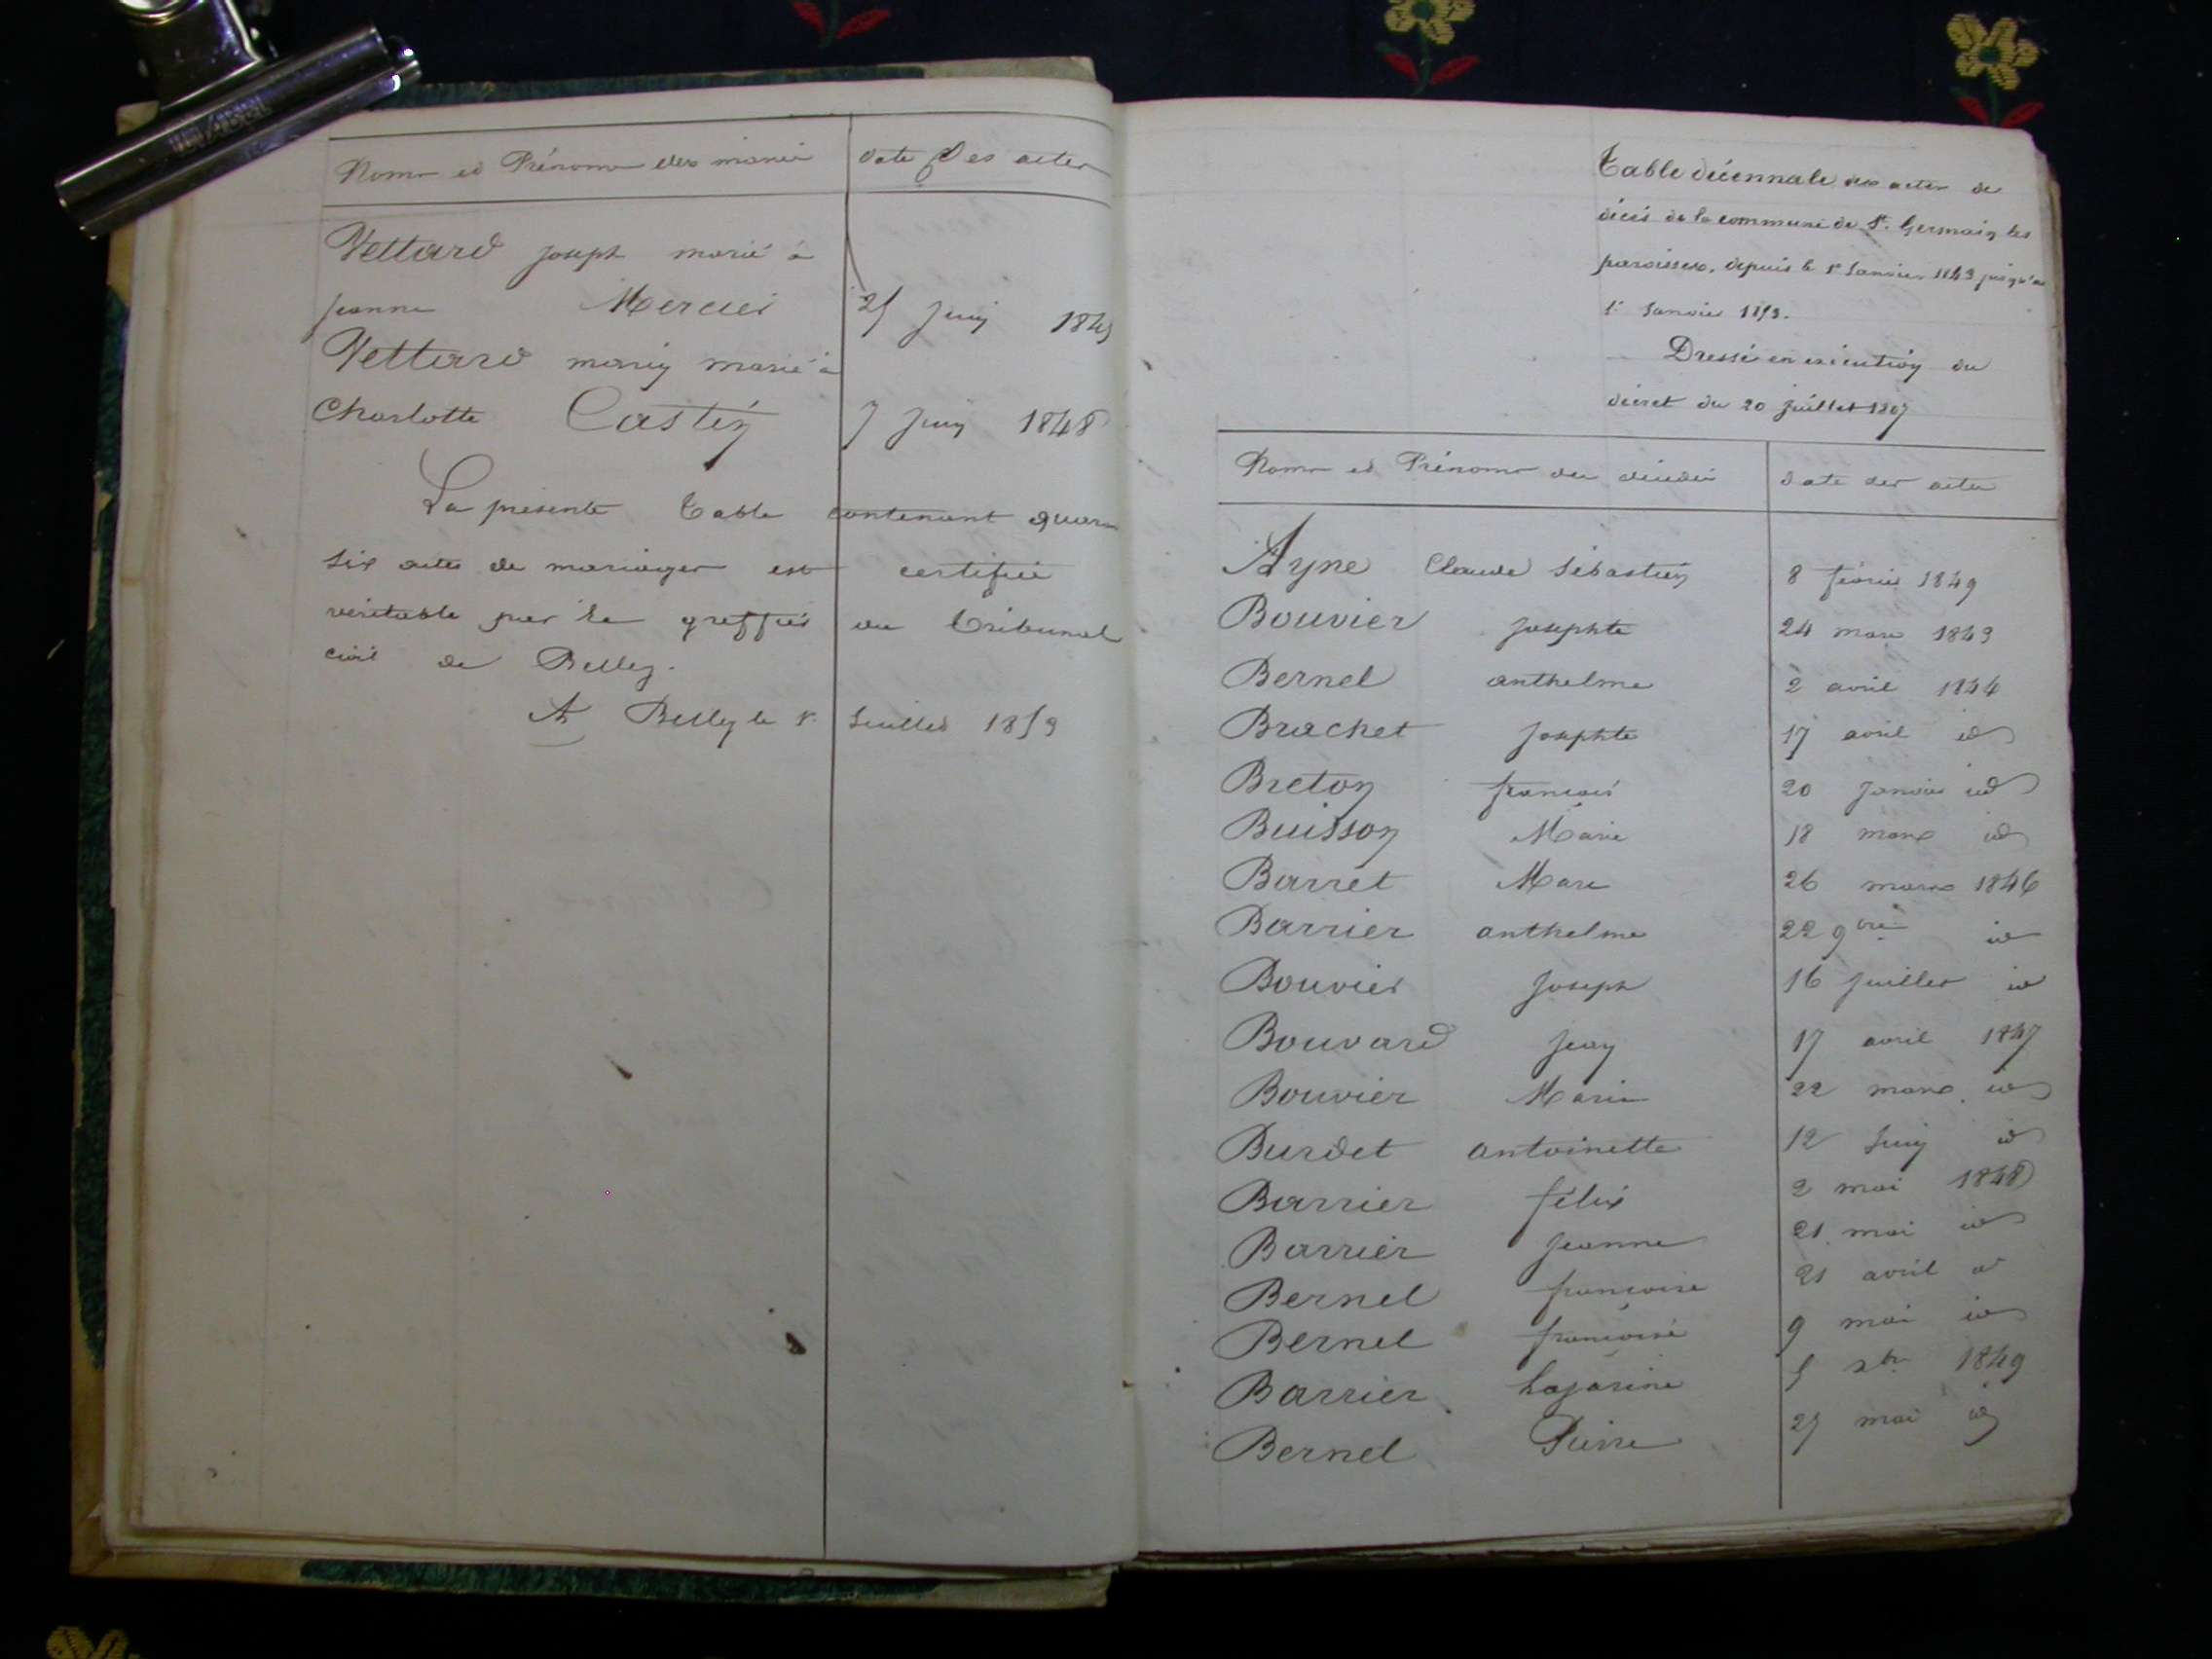 Noms et Prénoms des mariés date Des actes
Vettard joseph marié à
jeanne Mercier 25 juin 1845
Vettard marin marié à
Charlotte Castin 7 juin 1848
La présente Table contenant quaran
six actes de mariages est certifiée
véritable par le greffier du Tribunal
civil de Belley.
A Belley le 1r. Juillet 1853
Table décennale des actes de
décés de la commune de St. Germain les
paroisses, depuis le 1r Janvier 1843 jusqu'au
1r Janvier 1853.
Dressé en exécution du
décret du 20 juillet 1807
Noms et Prénoms des décédés date des actes
Ayne Claude Sébastien 8 février 1849
Bouvier josephte 24 mars 1843
Bernel anthelme 2 avril 1844
Brachet josephte 17 avril id
Breton françois 20 janvier id
Buisson Marie 18 mars id
Barret Marc 26 mars 1846
Barrier anthelme 22 9bre id
Bouvier joseph 16 juillet id
Bouvard jean 17 avril 1847
Bouvier Marie 22 mars id
Burdet antoinette 12 Juin id
Barrier félix 2 mai 1848
Barrier jeanne 21 mai id
Bernel françoise 21 avril id
Bernel françoise 9 mai id
Barrier Lazarine 5 xbr 1849
Bernel Pierre 25 mai id